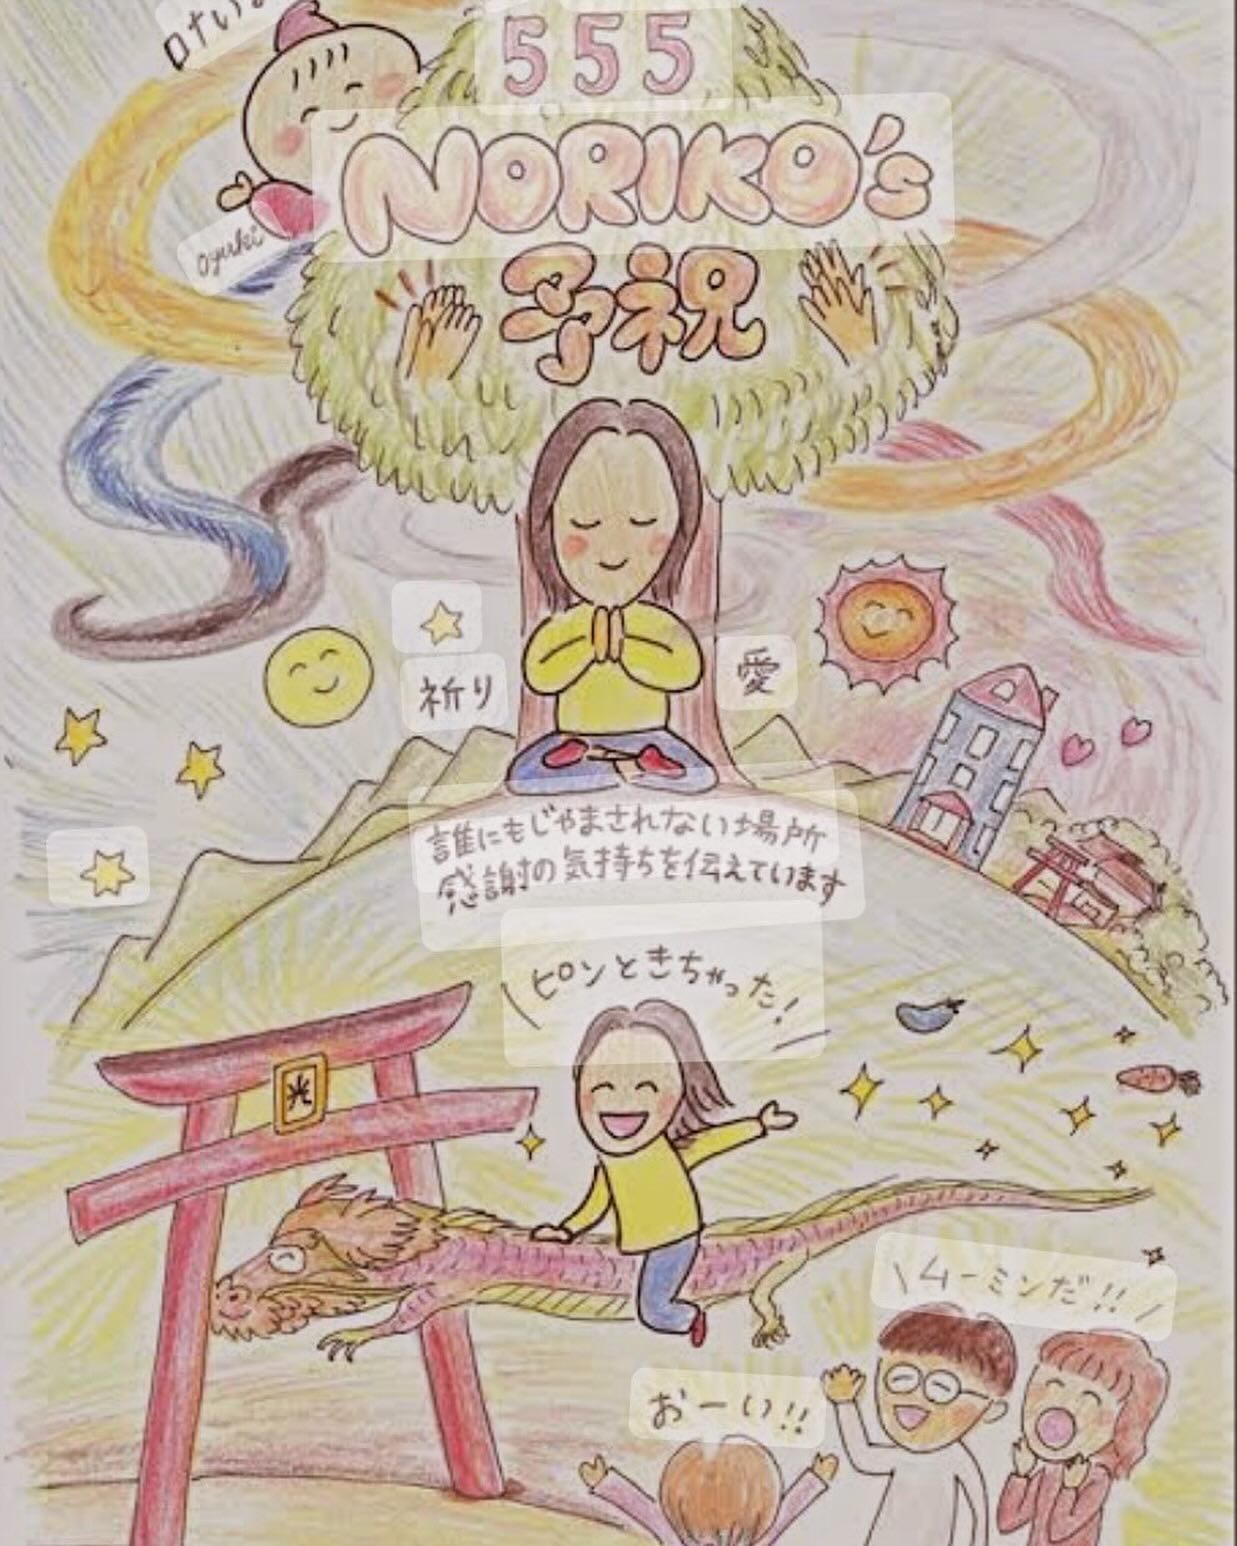 555
NORIKO's
予祝
oyuki
祈り
愛
誰にもじゃまされない場所
感謝の気持ちを伝えています
\ピンときちゃった!/
光
\ムーミンだ!!/
おーい!!